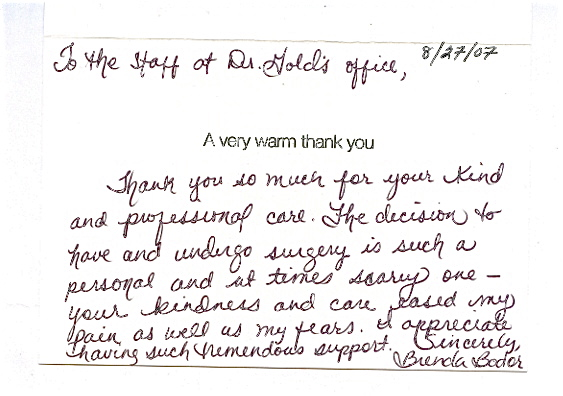 8/27/07
To the Staff at Dr. Gold's office,
A very warm thank you
Thank you so much for your kind
and professional care. The decision to
have and undergo surgery is such a
personal and at times scary one –
your kindness and care eased my
pain as well as my fears. I appreciate
having such tremendous support. Sincerely,
Brenda Bodor